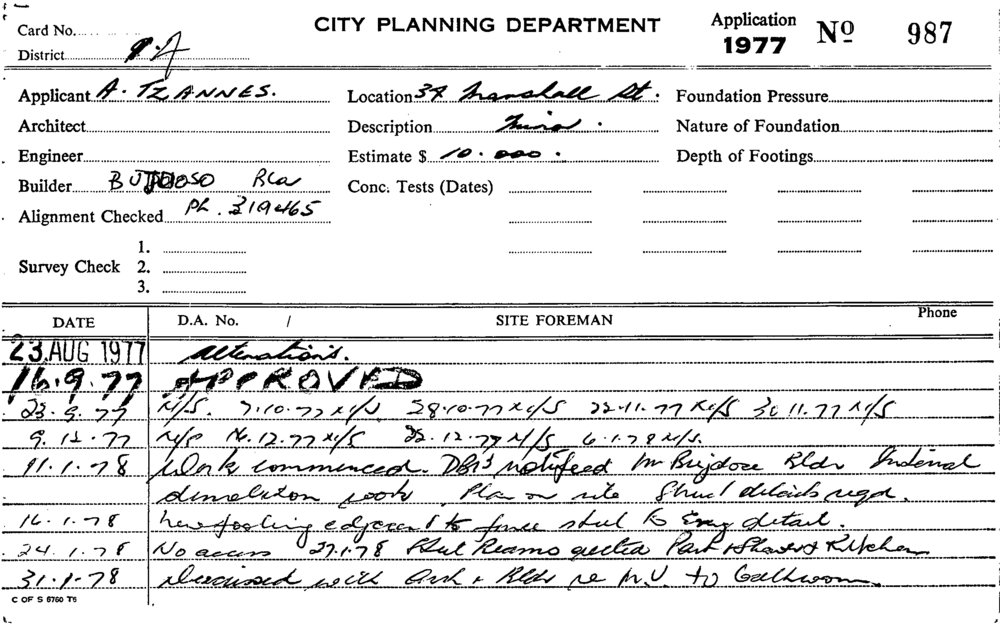 Card No.
CITY PLANNING DEPARTMENT
Application 1977 No 987
District
Applicant A. TZANNES. Location 34 Marshall St. Foundation Pressure
Architect Description Nature of Foundation
Engineer Estimate $ 10.000. Depth of Footings
Builder Conc. Tests (Dates)
Alignment Checked Ph. 319465
1.
Survey Check 2.
3.
DATE D.A. No. / SITE FOREMAN Phone
23 AUG 1977 Alterations.
16.9.77 APPROVED
23.9.77 N/S. 7.10.77 N/S 28.10.77 N/S 22.11.77 N/S 30.11.77 N/S
9.12.77 16.12.77 N/S 22.12.77 N/S 6.1.78 N/S.
11.1.78 Work commenced. notified Mr Bldr Internal
demolition work Plan on site Struct details reqd.
16.1.78 New footing adjacent to steel to Eng detail.
24.1.78 No access 27.1.78 Steel Beams erected Part Kitchen
31.1.78 Discussed with Arch + Bldr re M.V. to Bathroom.
C OF S 6760 T6